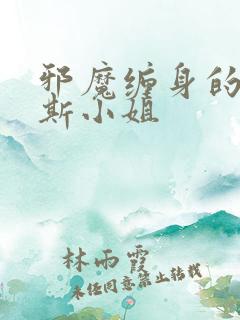 邪魔缠身的
斯小姐
林雨霞
未经同意禁止转载